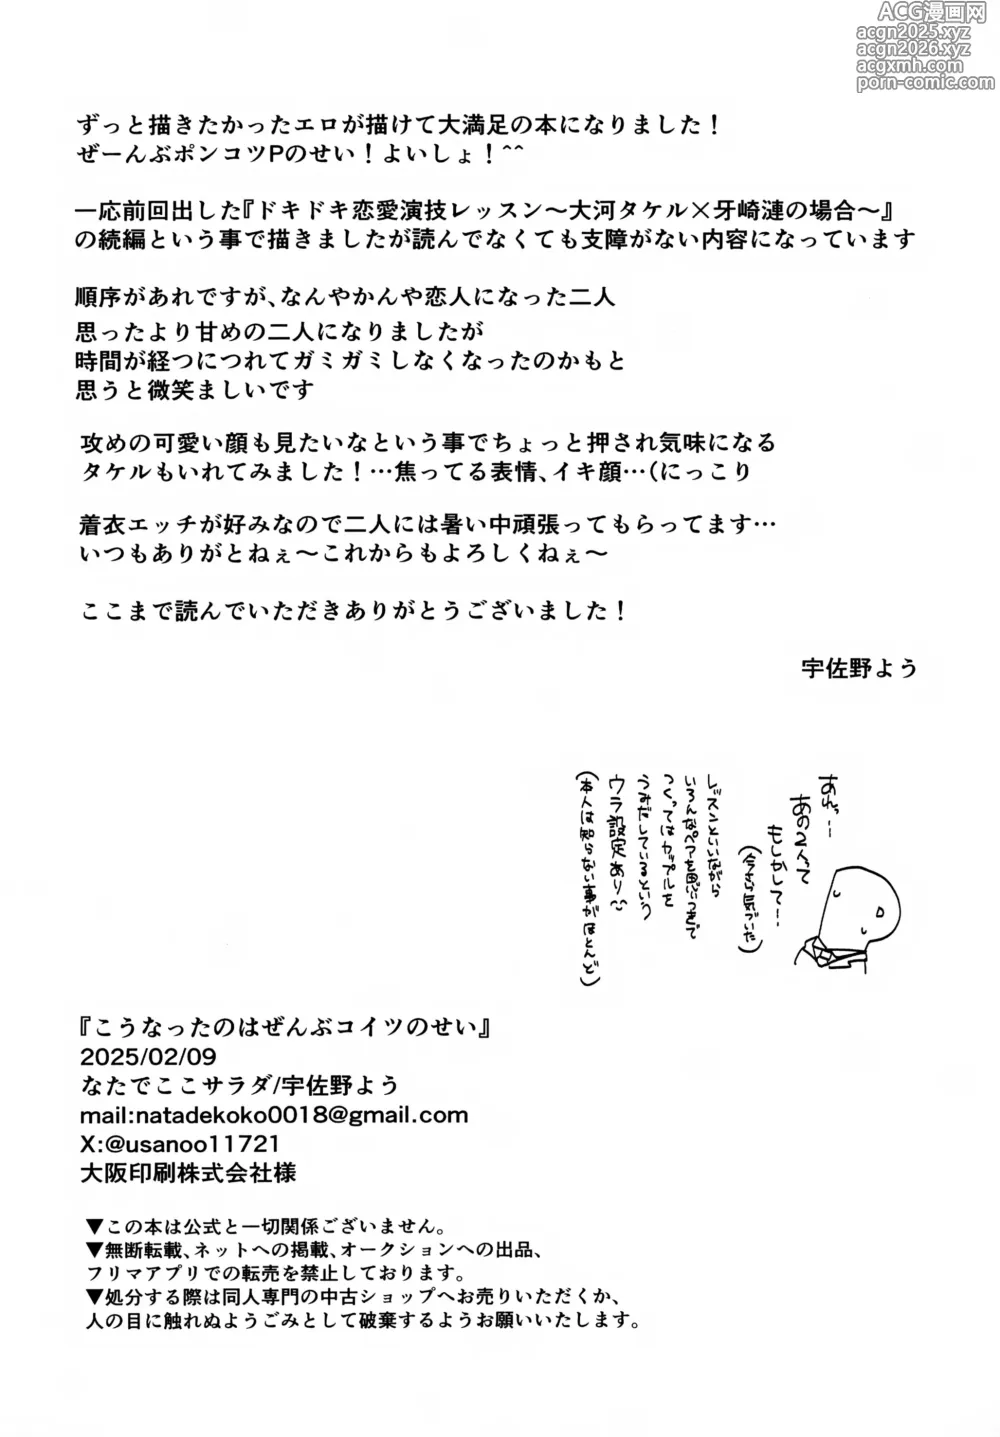 ACG漫画网
acgn2025.xyz
acgn2026.xyz
acgxmh.com
porn-comic.com
ずっと描きたかったエロが描けて大満足の本になりました！
ぜーんぶポンコツPのせい！よいしょ！^^
一応前回出した『ドキドキ恋愛演技レッスン～大河タケル×牙崎漣の場合～』
の続編という事で描きましたが読んでなくても支障がない内容になっています
順序があれですが、なんやかんや恋人になった二人
思ったより甘めの二人になりましたが
時間が経つにつれてガミガミしなくなったのかもと
思うと微笑ましいです
攻めの可愛い顔も見たいなという事でちょっと押され気味になる
タケルもいれてみました！…焦ってる表情、イキ顔…（にっこり
着衣エッチが好みなので二人には暑い中頑張ってもらってます…
いつもありがとねぇ～これからもよろしくねぇ～
ここまで読んでいただきありがとうございました！
宇佐野よう
あれっ…
あの2人って
もしかして…
（今さら気づいた）
レッスンといいながら
いろんなペアを思いつきで
つくってはカップルを
うみだしているという
ウラ設定あり
（本人は知らない事がほとんど）
『こうなったのはぜんぶコイツのせい』
2025/02/09
なたでここサラダ/宇佐野よう
mail:natadekoko0018@gmail.com
X:@usanoo11721
大阪印刷株式会社様
▼この本は公式と一切関係ございません。
▼無断転載、ネットへの掲載、オークションへの出品、
フリマアプリでの転売を禁止しております。
▼処分する際は同人専門の中古ショップへお売りいただくか、
人の目に触れぬようごみとして破棄するようお願いいたします。